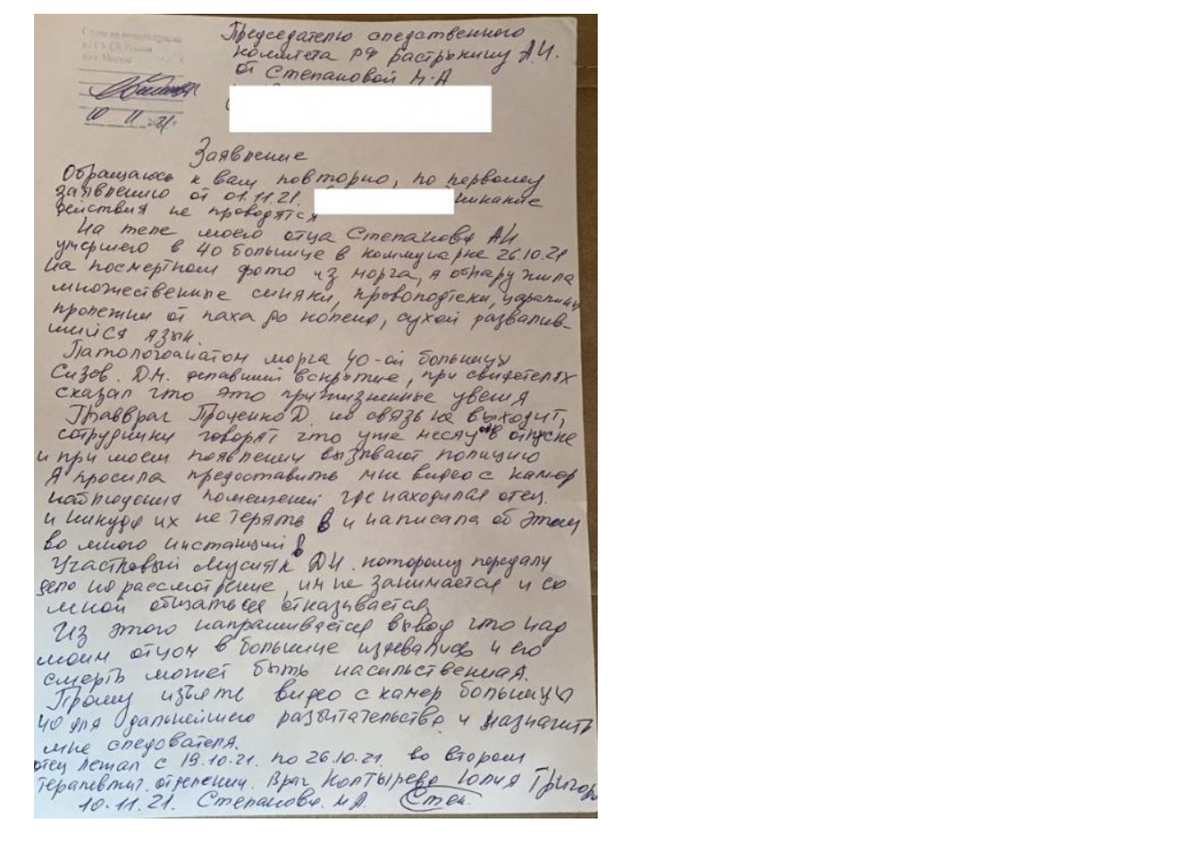 Председателю следственного
комитета РФ Бастрыкину А.И.
от Степановой Н.А
10 11 21
Заявление
Обращаюсь к вам повторно, по первому
заявлению от 01.11.21. никакие
действия не проводятся
На теле моего отца Степанова АИ
умершего в 40 больнице в коммунарке 26.10.21
на посмертном фото из морга, я обнаружила
множественные синяки, кровоподтеки, царапины
пролежни от паха до колено, сухой развалив-
шийся язык.
Патологоанатом морга 40-ой больницы
Сизов. Д.М. делавший вскрытие, при свидетелях
сказал что это прижизненные увечия
Главврач Проценко Д. на связь не выходит,
сотрудники говорят что уже месяц в отпуске
и при моем появлении вызывают полицию
Я просила предоставить мне видео с камер
наблюдения помещений где находился отец.
и никуда их не терять и написала об этом
во много инстанций
Участковый Мусияк Д.И. которому передали
дело на рассмотрение, им не занимается и со
мной общаться отказывается
Из этого напрашивается вывод что над
моим отцом в больнице издевались и его
смерть может быть насильственная.
Прошу изъять видео с камер больницы
40 для дальнейшего разбитательства и назначить
мне следователя.
отец лежал с 19.10.21. по 26.10.21. во втором
терапевтич. отделении. Врач Колтырева Юлия Григор
10.11.21. Степанова. Н.А. Степ.